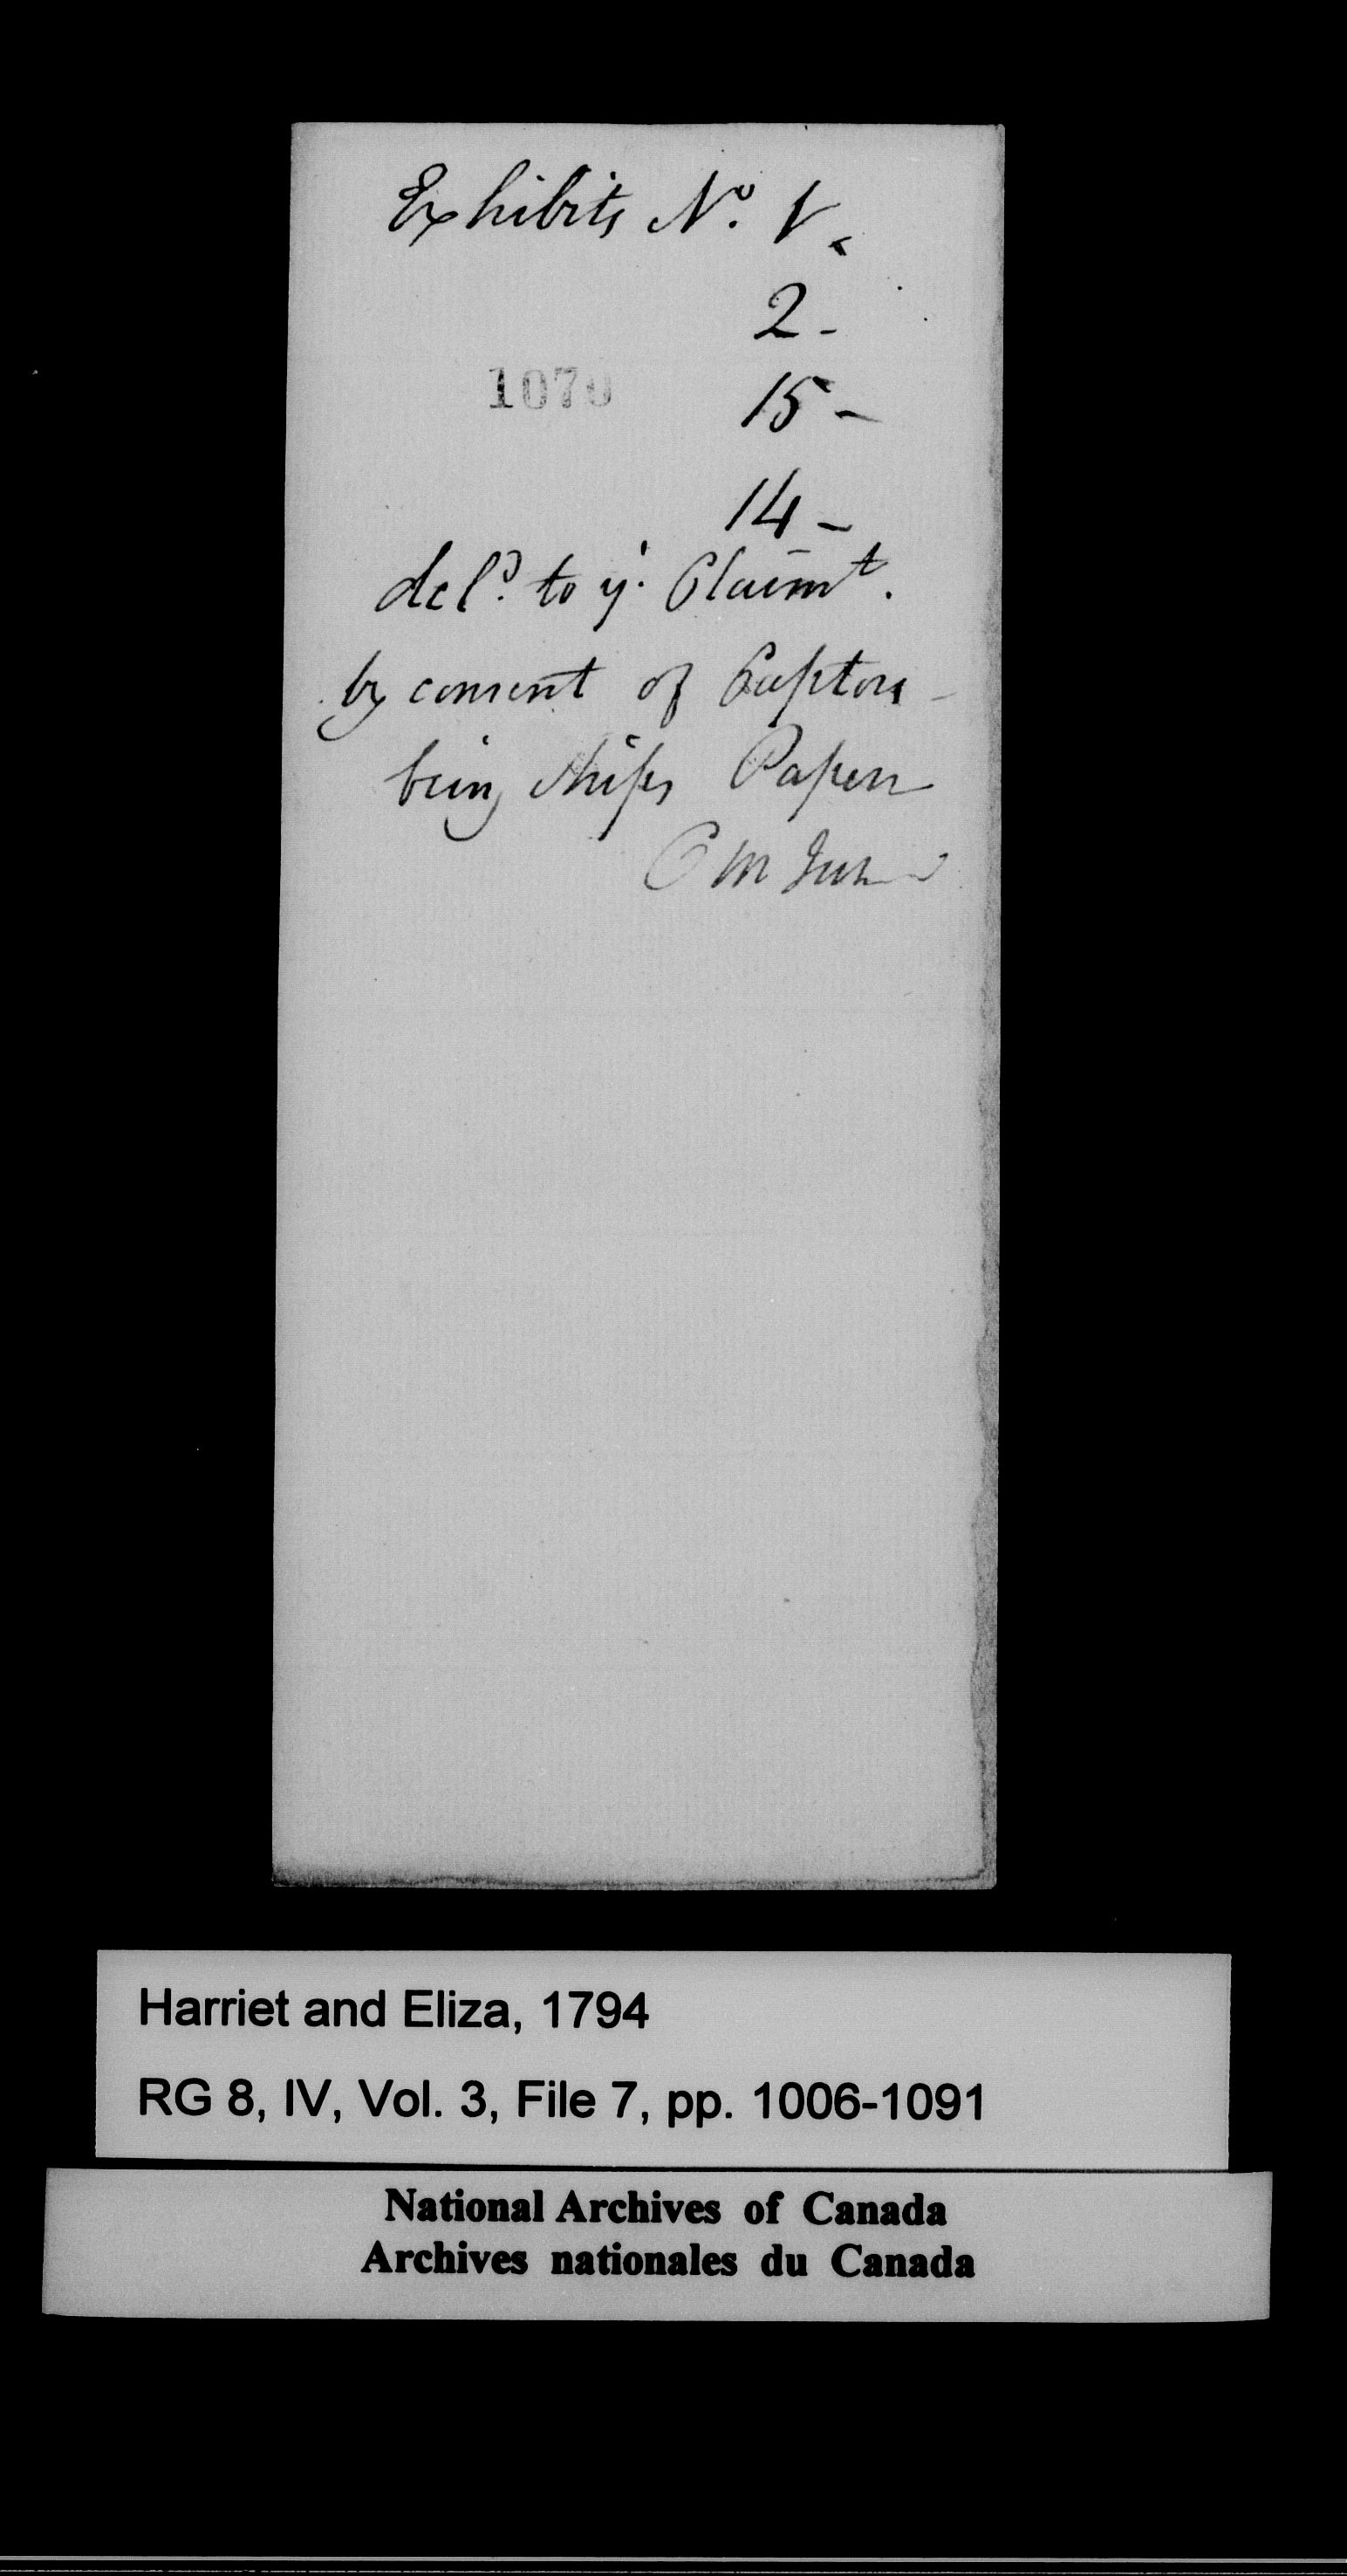 Exhibits No. 1.
2 -
1070
15 -
14 -
deld. to ye. Claimt.
by consent of Captors -
being ships Papers
C M
Harriet and Eliza, 1794
RG 8, IV, Vol. 3, File 7, pp. 1006-1091
National Archives of Canada
Archives nationales du Canada